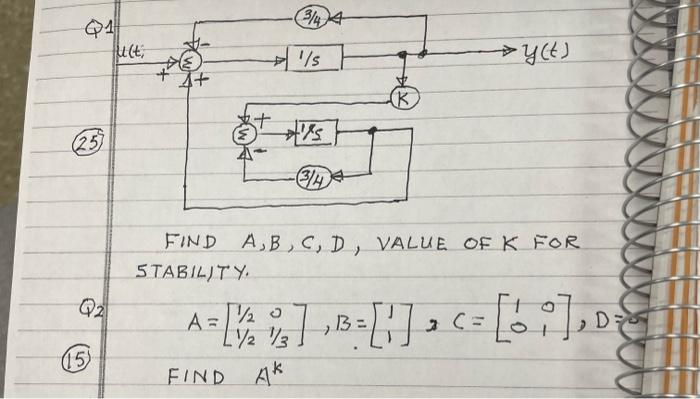 Q1
3/4
u(t)
-
Σ
1/s
y(t)
+
+
K
+
Σ
1/s
25
-
3/4
FIND A,B,C,D, VALUE OF K FOR
STABILITY.
Q2
A = [1/2 0 1/2 1/3], B = [1 1], C = [1 0 0 1], D =
15
FIND A^k